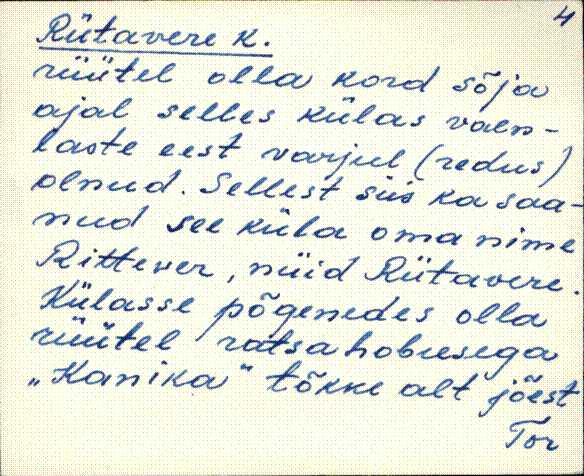 4
Rütavere k.
rüütel olla kord sõja
ajal selles külas vaen-
laste eest varjul (redus)
olnud. Sellest siis ka saa-
nud see küla oma nime
Rittever, nüid Rütavere.
Külasse põgenedes olla
rüütel ratsahobusega
„Kanika" tõkke alt jõest
Tor